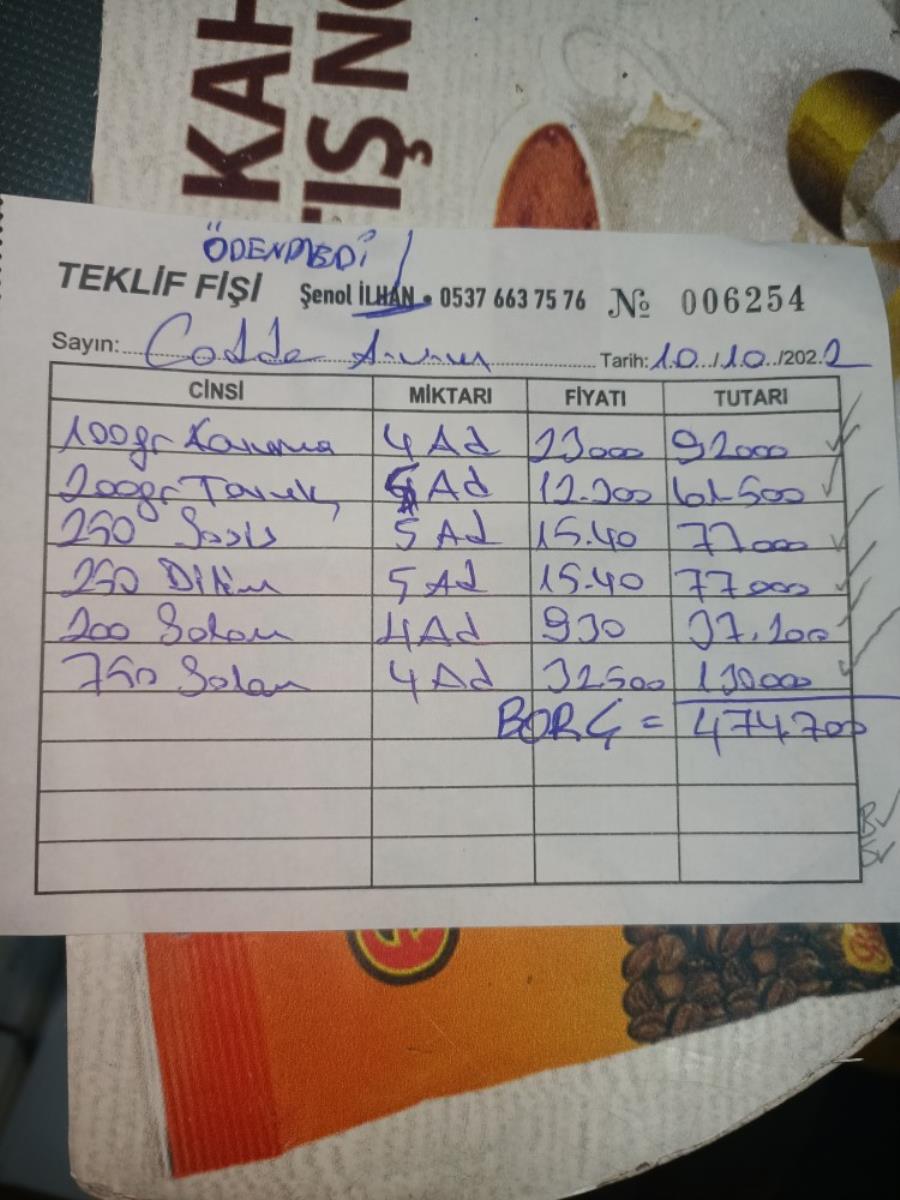 KAH
İŞNO
ÖDENMEDİ
TEKLİF FİŞİ Şenol İLHAN • 0537 663 75 76 № 006254
Sayın: Cadde Tarih: 10/10/2022
CİNSİ MİKTARI FİYATI TUTARI
100gr Kavurma 4 Ad 23000 92000
200gr Tavuk 5 Ad 12.300 61.500
250 Sosis 5 Ad 15.40 77000
250 Dilim 5 Ad 15.40 77000
200 Salam 4 Ad 930 37.200
750 Salam 4 Ad 32500 130000
BORÇ = 474.700
B✓
S✓